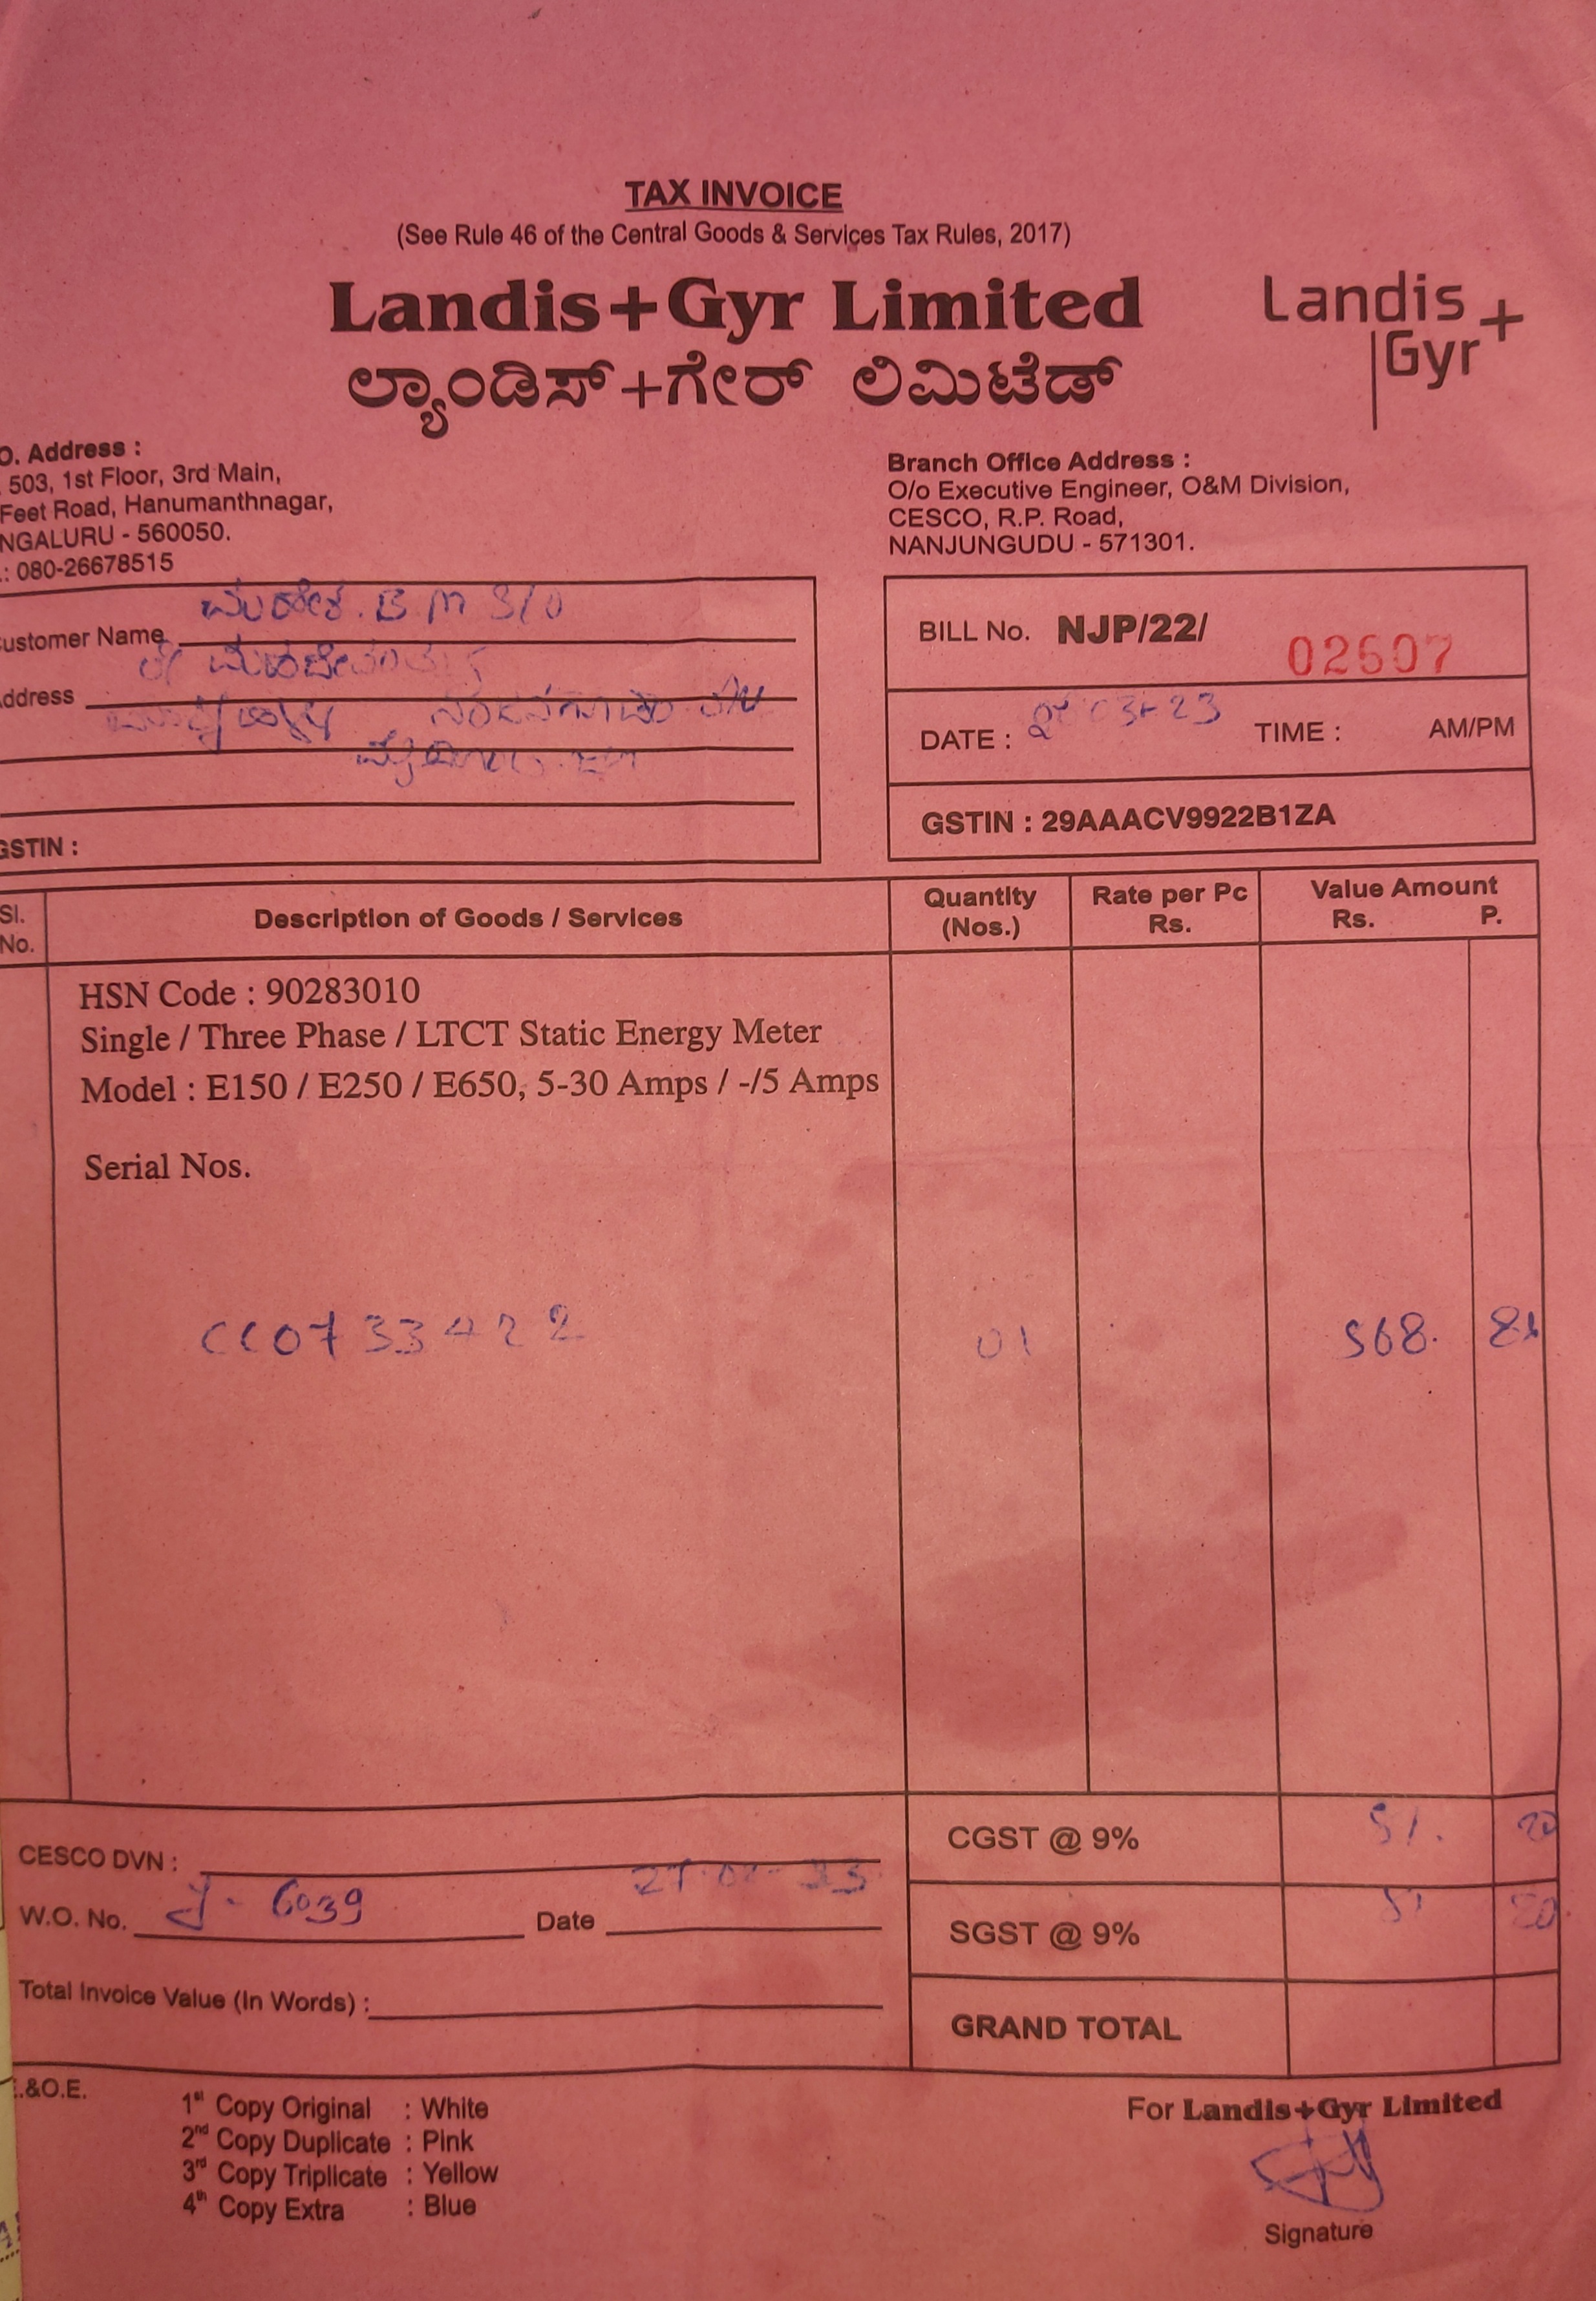 TAX INVOICE
(See Rule 46 of the Central Goods & Services Tax Rules, 2017)
Landis+Gyr Limited
ಲ್ಯಾಂಡಿಸ್+ಗೇರ್ ಲಿಮಿಟೆಡ್
Landis+
Gyr
O. Address :
503, 1st Floor, 3rd Main,
Feet Road, Hanumanthnagar,
NGALURU - 560050.
.: 080-26678515
Branch Office Address :
O/o Executive Engineer, O&M Division,
CESCO, R.P. Road,
NANJUNGUDU - 571301.
ustomer Name B M S/O
ddress
GSTIN :
BILL No. NJP/22/ 02607
DATE : TIME : AM/PM
GSTIN : 29AAACV9922B1ZA
Sl. No. Description of Goods / Services Quantity (Nos.) Rate per Pc Rs. Value Amount Rs. P.
HSN Code : 90283010
Single / Three Phase / LTCT Static Energy Meter
Model : E150 / E250 / E650, 5-30 Amps / -/5 Amps
Serial Nos.
CC0733422 01 568.
CESCO DVN :
W.O. No. J- 6039 Date
Total Invoice Value (In Words) :
CGST @ 9% 51. 20
SGST @ 9% 51 20
GRAND TOTAL
.&O.E.
1st Copy Original : White
2nd Copy Duplicate : Pink
3rd Copy Triplicate : Yellow
4th Copy Extra : Blue
For Landis+Gyr Limited
Signature